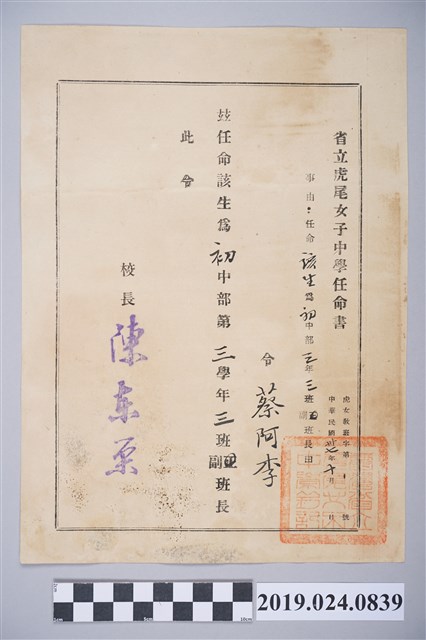 省立虎尾女子中學任命書
虎女教班字第 1 號
中華民國卅七年十月 日
事由：任命該生為初中部三年三班正副班長由
令 蔡阿李
茲任命該生為初中部第三學年三班正副班長
此令
校長 陳東原
1cm 5cm 10cm
2019.024.0839